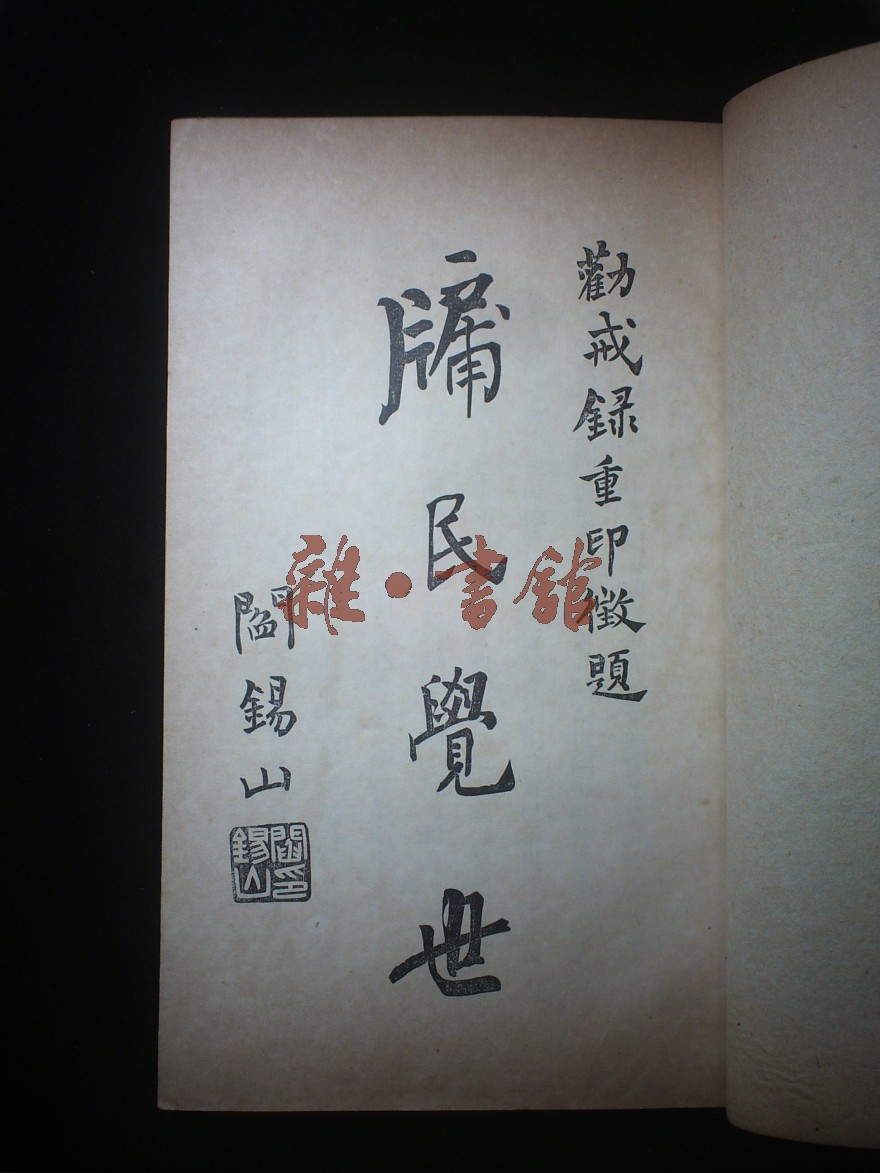 勸戒録重印徵題
牖民覺世
閻錫山
閻印錫山
雜·書館